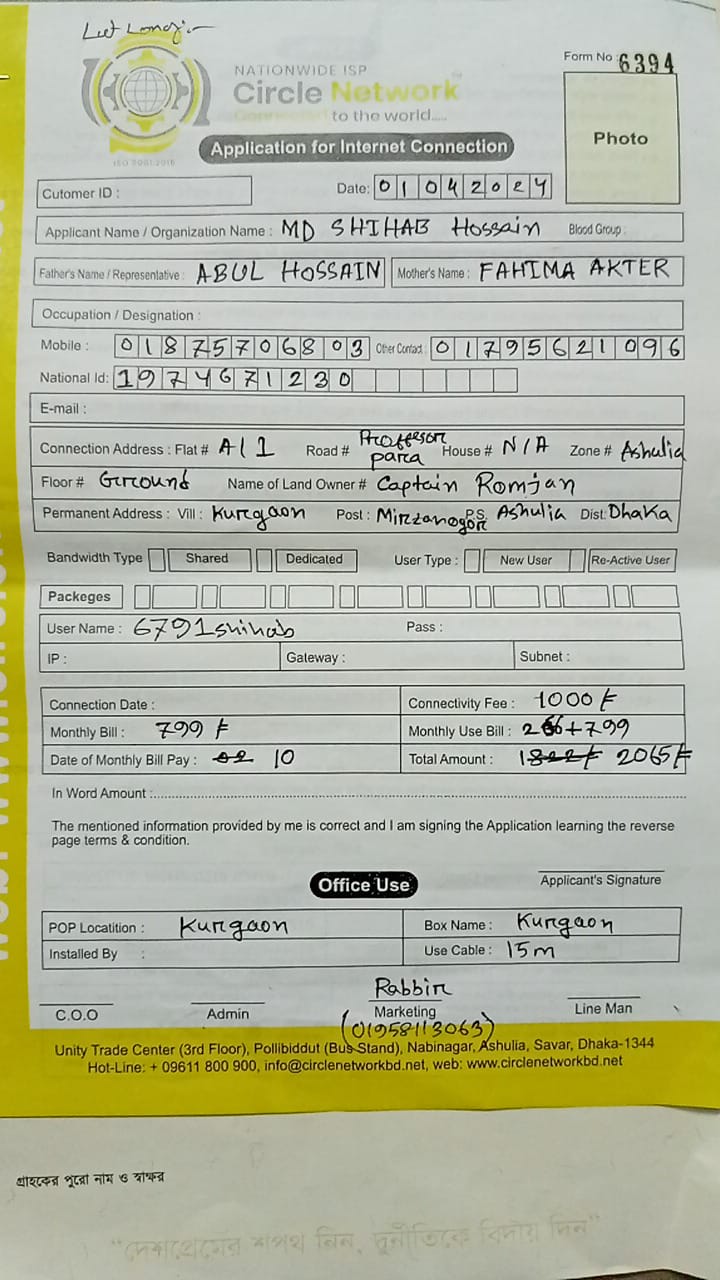 Let Long:-
NATIONWIDE ISP
Circle Network
Connected to the world.....
ISO 9001:2015
Form No : 6394
Photo
Application for Internet Connection
Cutomer ID :
Date: 01042024
Applicant Name / Organization Name : MD SHIHAB Hossain Blood Group :
Father's Name / Representative : ABUL HOSSAIN Mother's Name : FAHIMA AKTER
Occupation / Designation :
Mobile : 01875706803 Other Contact : 01795621096
National Id: 1974671230
E-mail :
Connection Address : Flat # A/1 Road # Proffesor para House # N/A Zone # Ashulia
Floor # Ground Name of Land Owner # Captain Romjan
Permanent Address : Vill : Kurgaon Post : Mirzanogor P.S. Ashulia Dist: Dhaka
Bandwidth Type Shared Dedicated User Type : New User Re-Active User
Packeges
User Name : 6791shihab Pass :
IP : Galeway : Subnet :
Connection Date : Connectivity Fee : 1000/-
Monthly Bill : 799/- Monthly Use Bill : 266+799
Date of Monthly Bill Pay : 02 10 Total Amount : 2065/-
In Word Amount :
The mentioned information provided by me is correct and I am signing the Application learning the reverse
page terms & condition.
Applicant's Signature
Office Use
POP Locatition : Kurgaon Box Name : Kurgaon
Installed By : Use Cable : 15m
Rabbir
C.O.O Admin Marketing Line Man
(01958113063)
Unity Trade Center (3rd Floor), Pollibiddut (Bus Stand), Nabinagar, Ashulia, Savar, Dhaka-1344
Hot-Line: + 09611 800 900, info@circlenetworkbd.net, web: www.circlenetworkbd.net
গ্রাহকের পুরো নাম ও স্বাক্ষর
"দেশপ্রেমের শপথ নিন, দুর্নীতিকে বিদায় দিন"